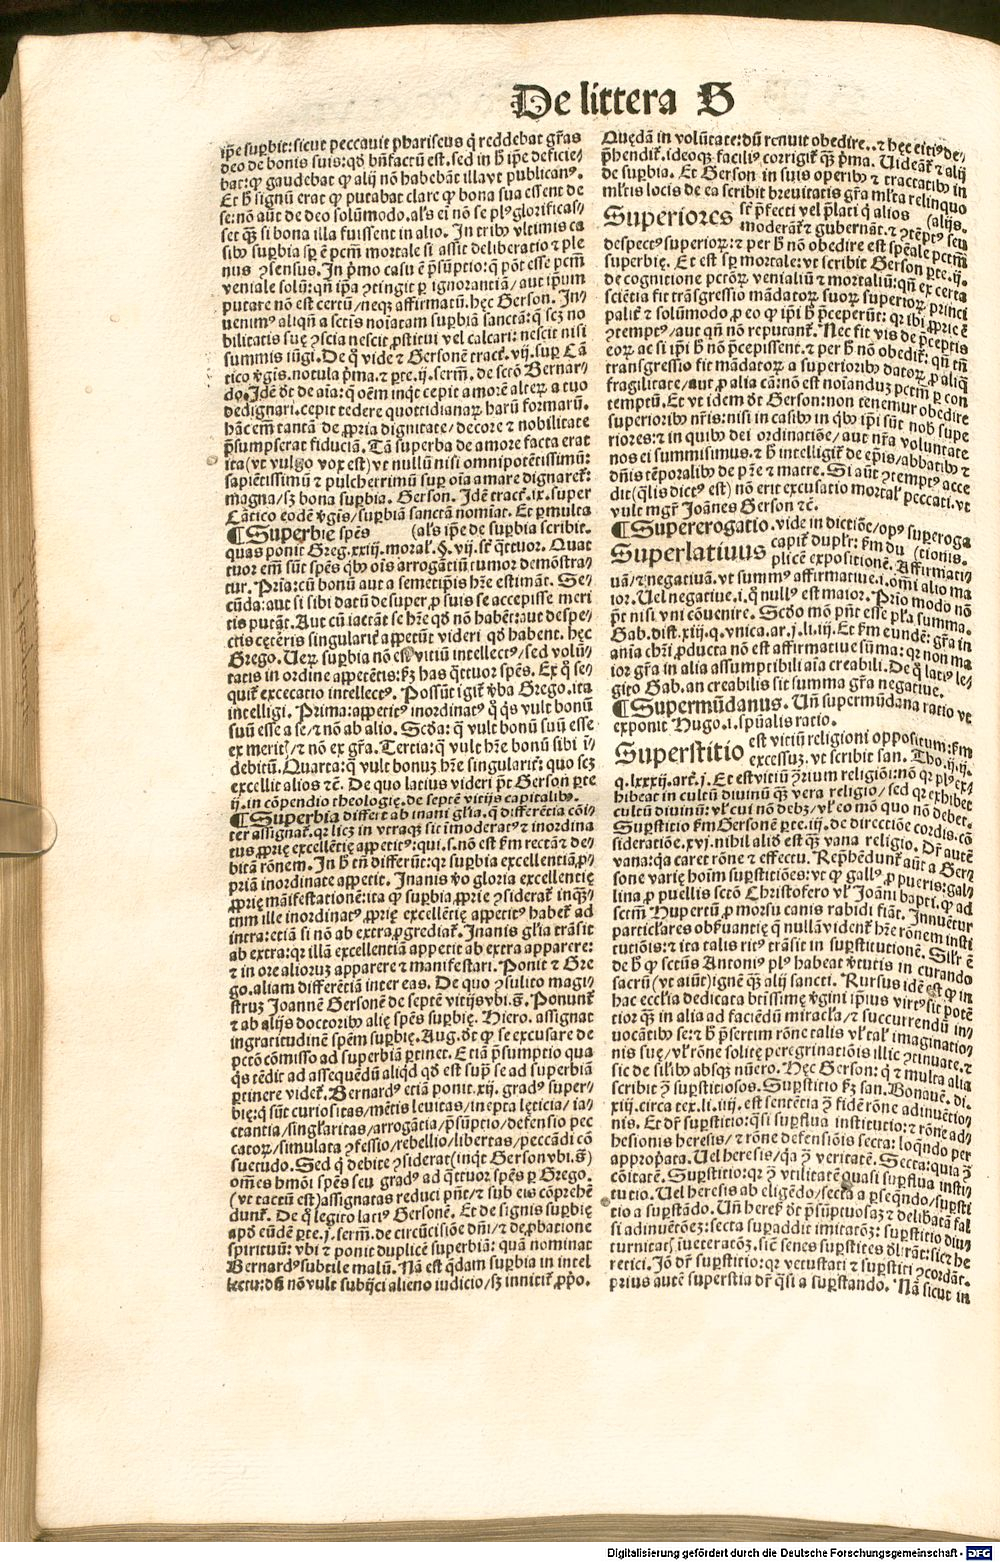 De littera S
ip̄e suꝑbit:sicut peccauit phariseus q̇ reddebat gr̄as
deo de bonis suis:qđ bn̄factū est.sed in h̄ ip̄e deficie-
bat:qꝫ gaudebat ꝙ alij nō habebāt illa vt publicanꝰ.
Et h̄ signū erat ꝙ putabat clare ꝙ bona sua essent de
se:nō aūt de deo solūmodo.al̄s ei nō se plꝰ glorificas-
set qꝫ si bona illa fuissent in alio. In tribꝰ vltimis ca
sibꝰ suꝑbia sꝑ ē pctm̄ mortale si assit deliberatio ⁊ ple
nus ꝯsensus. In p̄mo casu ē p̄sūptio:q̄ pōt esse pctm̄
veniale solū:qn̄ ip̄a ꝯtingit ꝑ ignorantiā/aut ip̄um
putare nō est certū/neqꝫ affirmatū.hęc Gerson. In-
uenimꝰ aliqn̄ a sctīs noīatam suꝑbiā sanctā:q̄ scꝫ no
bilitatis suę ꝯscia nescit ꝓstitui vel calcari:nescit nisi
summis iūgi. De q̄ vide ⁊ Gersonē tract.vij.suꝑ Cā
tico ꝟgīs.notula p̄ma.⁊ ꝑte.ij.serm̄.de sctō Bernar-
do. Idē dt̄ de aīa:q̄ oēm inq̄t cepit amorē alteꝝ a tuo
dedignari.cepit tedere quottidianaꝝ harū formarū.
hāc em̄ tantā de ꝓpria dignitate/decore ⁊ nobilitate
p̄sumpserat fiduciā. Tā superba de amore facta erat
ita(vt vulgo vox est)vt nullū nisi omnipotētissimū:
sapiētissimū ⁊ pulcherrimū suꝑ oīa amare dignaret̄:
magna/sꝫ bona suꝑbia. Gerson. Idē tract.ix.super
Cātico eodē ꝟgīs/suꝑbiā sanctā nomīat. Et ꝑmulta
¶Superbie spēs (al̄s ip̄e de suꝑbia scribit.
quas ponit Greg.xxiij.moral̄.§.vij.sūt q̄ttuor. Quat
tuor em̄ sūt spēs qͥbꝰ oīs arrogātiū tumor demōstra-
tur. Pria:cū bonū aut a semetip̄is hr̄e estimāt. Se-
cūda:aut si sibi datū desuper ꝓ suis se accepisse meri
tis putāt. Aut cū iactāt se hr̄e qđ nō habēt:aut despe-
ctis cęteris singularit̄ appetūt videri qđ habent. hęc
Grego. Ueꝝ suꝑbia nō est vitiū intellectꝰ/sed volū-
tatis in ordine appetētis:sꝫ has q̄ttuor spēs. Ex q̄ se-
quit̄ excecatio intellectꝰ. Possūt igit̄ ꝟba Grego.ita
intelligi. Prima:appetitꝰ inordinatꝰ q̄ q̄s vult bonū
suū esse a se/⁊ nō ab alio. Scđa: q̄ vult bonū suū esse
ex merit̄/⁊ nō ex gr̄a. Tertia:q̄ vult hr̄e bonū sibi ī-
debitū. Quarta:q̄ vult bonuꝫ hr̄e singularit̄: quo scꝫ
excellit alios ⁊c̄. De quo latius videri pt̄ Gerson ꝑte
ij.in cōpendio theologię.de septē vitijs capitalibꝰ.
¶Superbia differt ab inani gl̄ia.q̄ differētia cōi-
ter assignat̄.qꝛ licꝫ in vtraqꝫ sit īmoderatꝰ ⁊ inordina
tus ꝓprię excellētię appetitꝰ:qui.s.nō est ẜm rectā ⁊ de-
bitā rōnem. In h̄ tn̄ differūt:qꝛ suꝑbia excellentiā ꝓ-
priā inordinate appetit. Inanis ꝟo gloria excellentię
ꝓprię māifestationē:ita ꝙ suꝑbia ꝓprie ꝯsiderat̄ inqꝫ-
tum ille inordinatꝰ ꝓprię excellētię appetitꝰ habet̄ ad
intra:etiā si nō ab extra ꝓgrediat̄. Inanis gl̄ia trāsit
ab extra:qꝛ illā excellentiā appetit ab extra apparere:
⁊ in ore alioruꝫ apparere ⁊ manifestari. Ponit ⁊ Gre
go.aliam differētiā inter eas. De quo ꝯsulito magi-
struꝫ Joannē Gersonē de septē vitijs vbi.s̄. Ponunt̄
⁊ ab alijs doctoribꝰ alię spēs suꝑbię. Hiero. assignat
ingratitudinē spēm suꝑbię. Aug. dt̄ ꝙ se excusare de
pctō cōmisso ad superbiā ꝑtinet. Etiā p̄sumptio qua
q̄s tēdit ad assequēdū aliqd̄ qđ est suꝑ se ad superbiā
ꝑtinere videt̄. Bernardꝰ etiā ponit.xij. gradꝰ super-
bię:q̄ sūt curiositas/mētis leuitas/inepta lęticia/ia-
ctantia/singl̄aritas/arrogātia/p̄sūptio/defensio pec
catoꝝ/simulata ꝯfessio/rebellio/libertas/peccādi cō
suetudo. Sed q̄ debite ꝯsiderat(inq̄t Gerson vbi.s̄)
om̄es hmōi spēs seu gradꝰ ad q̄ttuor spēs ꝑ Grego.
(vt tactū est)assignatas reduci pn̄t/⁊ sub eis cōprehē
dunt̄. De q̄ legito latiꝰ Gersonē. Et de signis suꝑbię
apđ eundē ꝑte.j.serm̄.de circūcisiōe dn̄i/⁊ de ꝓbatione
spirituū: vbi ⁊ ponit duplicē superbiā: quā nominat
Bernardꝰ subtile malū. Nā est q̄dam suꝑbia in intel
lectu:dū nō vult subijci alieno iudicio/sꝫ innitit̄ ꝓp̄o.
Quędā in volūtate:dū renuit obedire..⁊ hęc citiꝰ de-
p̄hendit̄.ideoqꝫ faciliꝰ corrigit̄ qꝫ p̄ma. Uideāt̄ ⁊ alij
de suꝑbia. Et Gerson in suis operibꝰ ⁊ tractatibꝰ in
ml̄tis locis de ea scribit breuitatis gr̄a ml̄ta relinquo
Superiores sūt p̄fecti vel p̄lati q̄ alios (alijs.
moderāt̄ ⁊ gubernāt.⁊ ꝯtēptꝰ seu
despectꝰ superioꝝ:⁊ per h̄ nō obedire est spēale pctm̄
superbię. Et est sꝑ mortale:vt scribit Gerson ꝑte.ij.
de cognitione pctōꝝ venialiū ⁊ mortaliū:qn̄ ex certa
sciētia fit trāsgressio mādatoꝝ suoꝝ superioꝝ princi
palit̄ ⁊ solūmodo ꝓ eo ꝙ ip̄i h̄ p̄ceperūt: qꝛ ibi ꝓprie ē
ꝯtemptꝰ/aut qn̄ nō reputant̄. Nec fit vis de p̄ceptis
eoꝝ ac si ip̄i h̄ nō p̄cepissent.⁊ per h̄ nō obedit̄: qn̄ tn̄
transgressio fit mādatoꝝ a superioribꝰ datoꝝ ꝓ aliq̄
fragilitate/aut ꝓ alia cā:nō est noīanduꝫ pctm̄ ꝑ con
temptū. Et vt idem dt̄ Gerson:non tenemur obedire
superioribꝰ nr̄is:nisi in casibꝰ in qͥbꝰ ip̄i sūt nob̄ supe
riores:⁊ in quibꝰ dei ordinatiōe/aut nr̄a voluntate
nos ei summisimus.⁊ h̄ intelligit̄ de ep̄is/abbatibꝰ ⁊
dn̄is tēporalibꝰ de pr̄e ⁊ matre. Si aūt ꝯtemptꝰ acce
dit(q̄lis dictꝰ est) nō erit excusatio mortal̄ peccati.vt
vult mgr̄ Joānes Gerson ⁊c̄.
¶Supererogatio.vide in dictiōe/opꝰ superoga
Superlatiuus capit̄ duplr̄: ẜm du (tionis.
plicē expositionē. Affirmati-
uā/⁊ negatiuā.vt summꝰ affirmatiue.i.om̄i alio ma
ior. Uel negatiue.i.q̄ nullꝰ est maior. Prio modo nō
pt̄ nisi vni cōuenire. Scđo mō pn̄t esse pl̄a summa.
Gab.dist.xiij.q.vnica.ar.j.li.iij. Et ẜm eundē: gr̄a in
aīa chr̄i ꝓducta nō est affirmatiue sūma: qꝛ non ma
ior gr̄a in alia assumptibili aīa creabili. De q̄ latiꝰ le-
gito Gab.an creabilis sit summa gr̄a negatiue.
¶Supermūdanus. Un̄ supermūdana ratio vt
exponit Hugo.i.spūalis ratio.
Superstitio est vitiū religioni oppositum:ẜm
excessuꝫ.vt scribit san. Tho.ij.ij.
q.lxxxij.art.j. Et est vitiū ꝯrium religiōi:nō qꝛ plꝰ ex-
hibeat in cultū diuinū qꝫ vera religio/sed qꝛ exhibet
cultū diuinū:vl̄ cui nō debꝫ/vl̄ eo mō quo nō debet.
Suꝑstitio ẜm Gersonē ꝑte.iij.de directiōe cordis.cō
sideratiōe.xvi.nihil aliđ est qꝫ vana religio. Dr̄ autē
vana:q̄a caret rōne ⁊ effectu. Rep̄hēdunt̄ aūt a Ger-
sone varię hoīm suꝑstitiōes:vt ꝙ gallꝰ ꝓ pueris:gal-
lina ꝓ puellis sctō Christofero vl̄ Joāni bapti.ꝙ ad
sctm̄ Hupertū ꝓ morsu canis rabidi fiāt. Innuētur
particl̄ares obẜuantię q̄ nullā vident̄ hr̄e rōnem insti
tutiōis:⁊ ita talis ritꝰ trāsit in suꝑstitutionē. Silr̄ ē
de h̄ ꝙ sctūs Antoniꝰ plꝰ habeat ꝟtutis in curando
sacrū(vt aiūt)ignē qꝫ alij sancti. Rursus idē est ꝙ in
hac eccl̄ia dedicata btīssimę ꝟgini ip̄ius virtꝰ sit potē
tior qꝫ in alia ad faciēdū miracl̄a/⁊ succurrendū in-
uocātibꝰ se:⁊ h̄ p̄sertim rōne talis vl̄ tal̄ imaginatio-
nis suę/vl̄ rōne solitę peregrinatiōis illic ꝯtinuate.⁊
sic de silibꝰ absqꝫ nūero. Hęc Gerson: q̄ ⁊ multa alia
scribit ꝯ suꝑstitiosos. Suꝑstitio ẜꝫ san. Bonauē. di.
xiij.circa tex.li.iiij.est sentētia ꝯ fidē rōne adinuētion-
nis. Et dr̄ suꝑstitio:q̄si suꝑflua institutio:⁊ rōne ad-
hesionis heresis/⁊ rōne defensiōis secta: loqn̄do per
appropata. Uel heresis/q̄a ꝯ veritatē. Secta:quia ꝯ
cōitatē. Suꝑstitio:qꝛ ꝯ vtilitatē quasi suꝑflua insti-
tutio. Uel heresis ab eligēdo/secta a ꝑseqn̄do/suꝑsti
tio a suꝑstādo. Un̄ heret̄ dt̄ p̄sūptuosaꝫ ⁊ delibatā fal
si adinuētōeꝫ:secta suꝑaddit imitatōꝫ: suꝑstitio diu-
turnitat̄ iueteratōꝫ.siē senes suꝑstites dl̄rāt:sicꝫ he
retici. Jō dr̄ suꝑstitio:qꝛ vetustati ⁊ suꝑstiti ꝯcordāt.
prius autē superstia dr̄ q̄si a suꝑstando. Nā sicut in
Digitalisierung gefördert durch die Deutsche Forschungsgemeinschaft - DFG